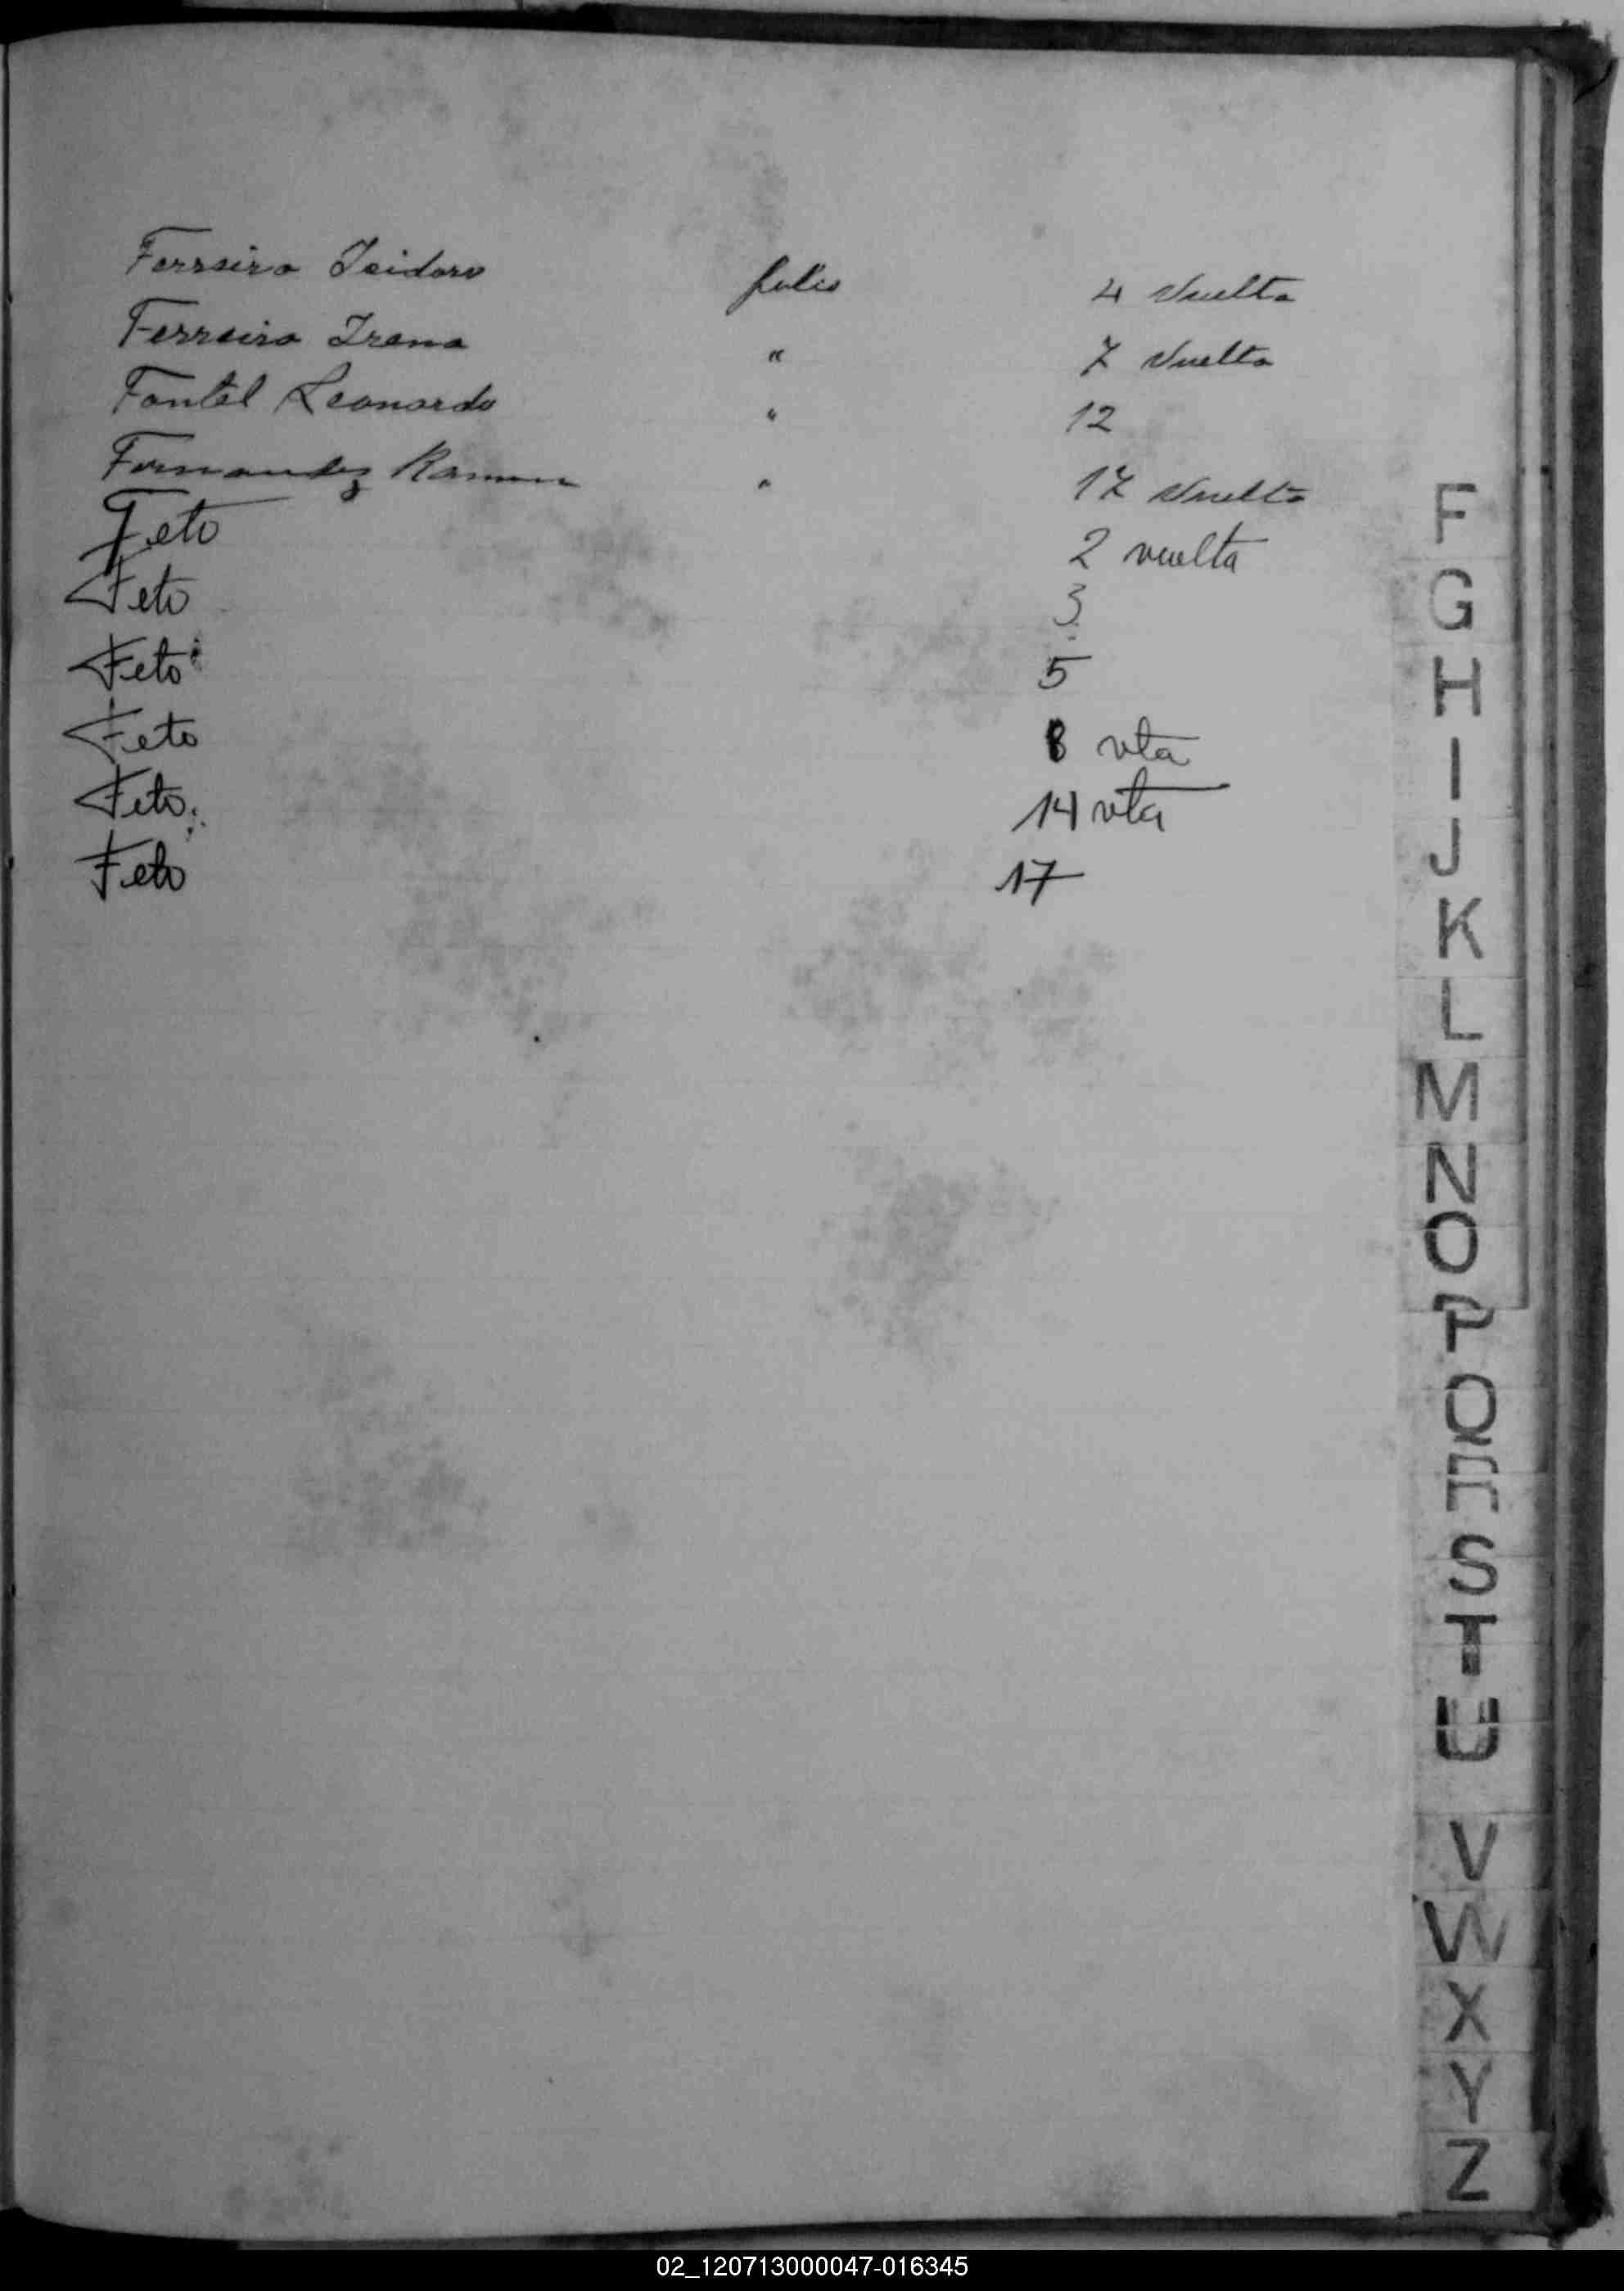 Ferreira Isidoro folio 4 Vuelta
Ferreira Irena " 7 Vuelta
Fontel Leonardo " 12
Fernandez Ramon " 17 Vuelta
Feto 2 vuelta
Feto 3
Feto 5
Feto 8 vta
Feto 14 vta
Feto 17
F
G
H
I
J
K
L
M
N
O
P
Q
R
S
T
U
V
W
X
Y
Z
02_120713000047-016345